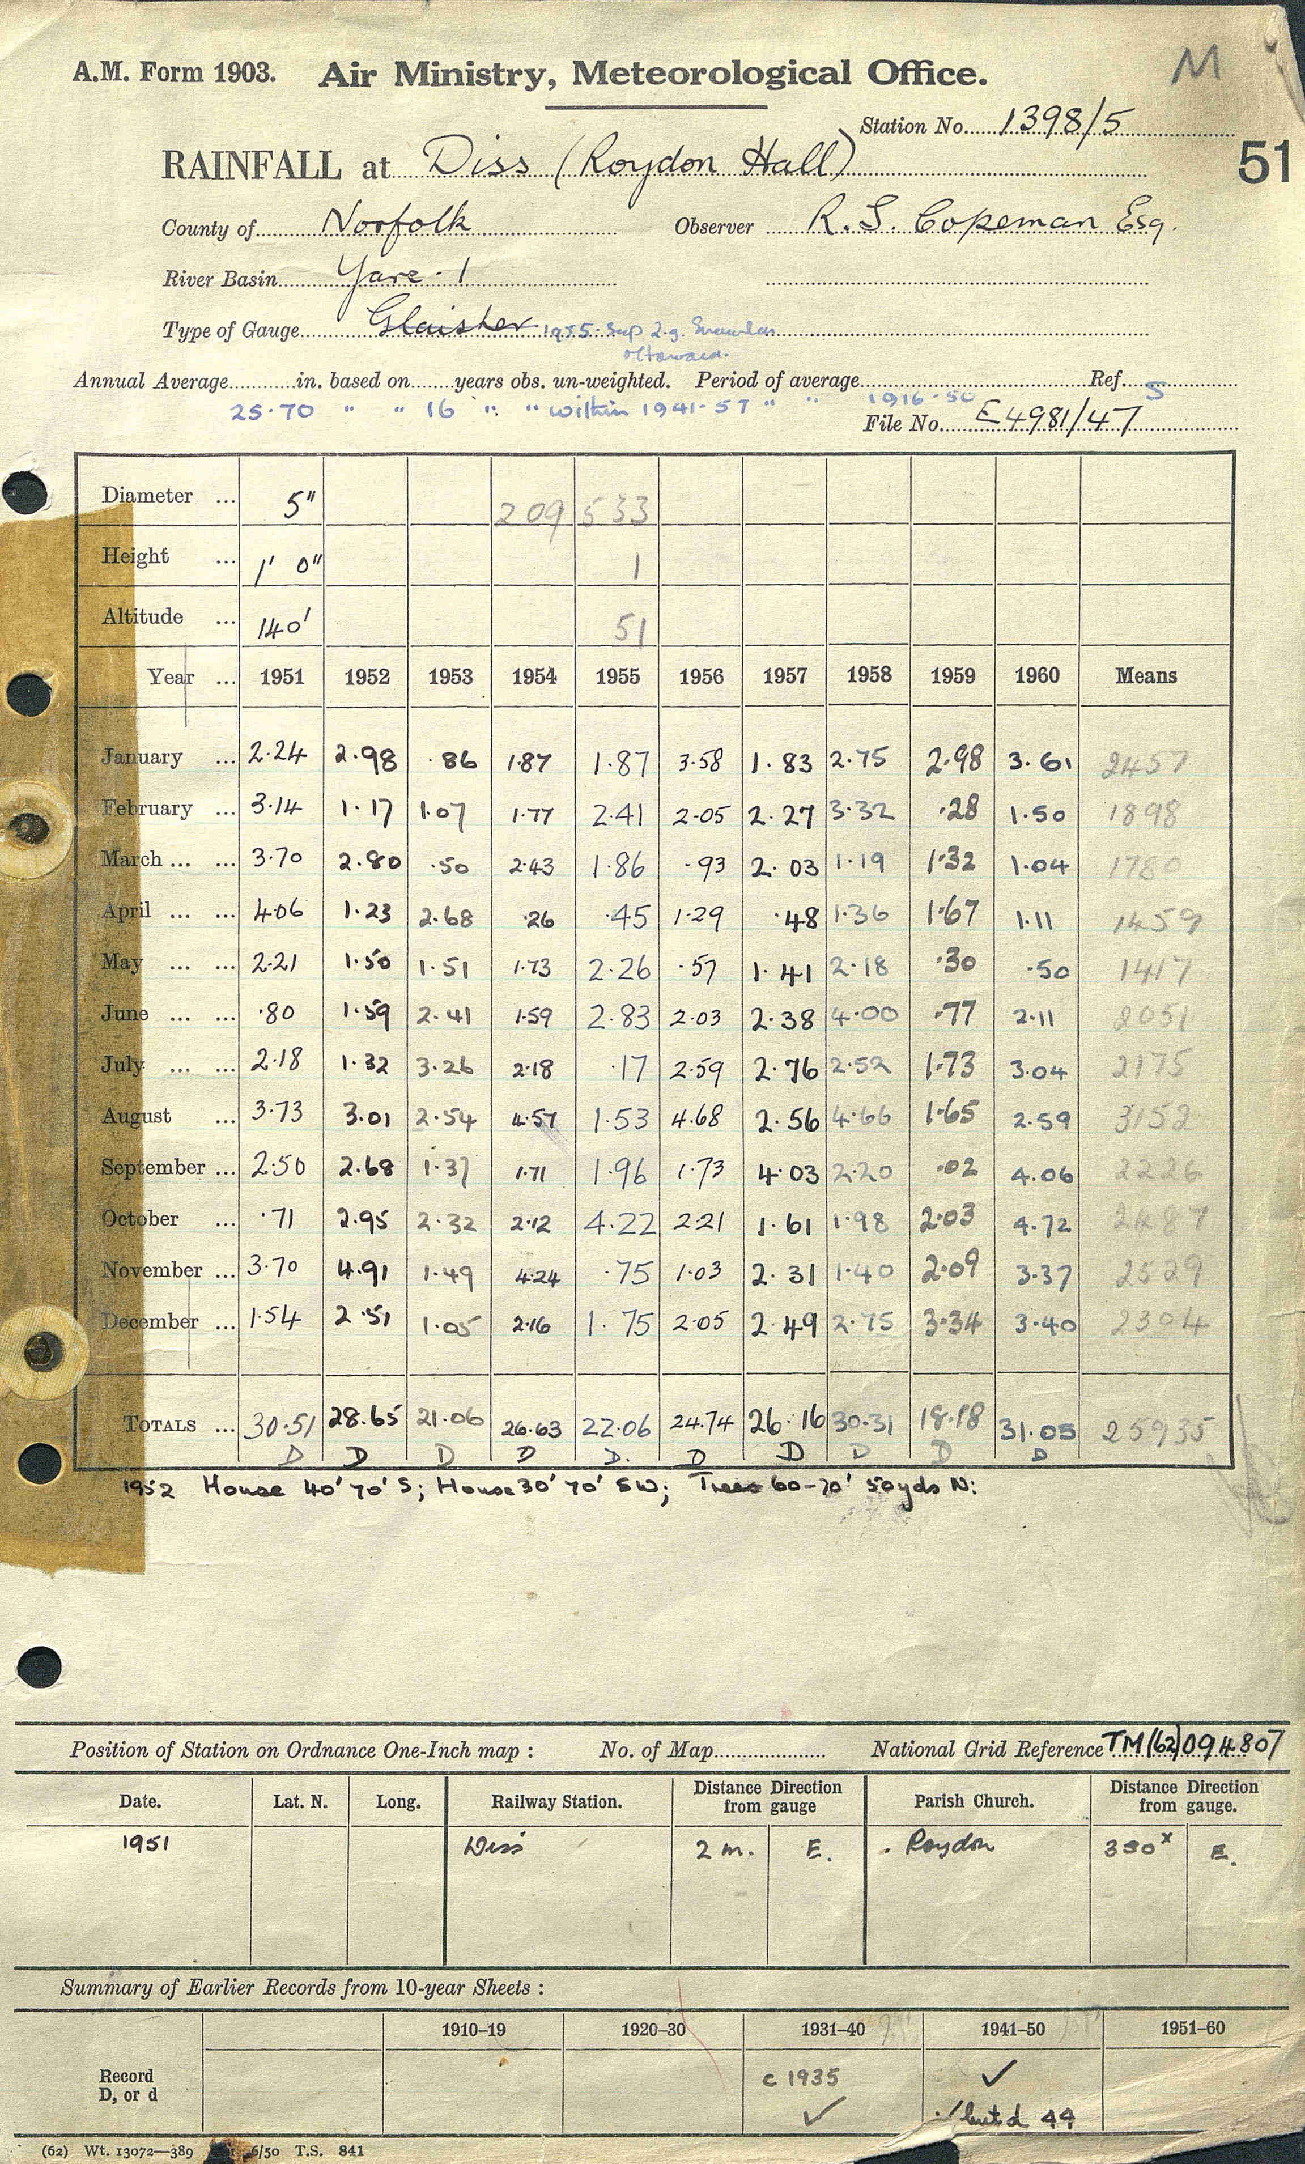 M
A.M. Form 1903. Air Ministry, Meteorological Office.
Station No. 1398/5
51
RAINFALL at Diss (Roydon Hall)
County of Norfolk Observer R. S. Copeman Esq.
River Basin Yare. 1
Type of Gauge Glaisher 1955. Sep
Annual Average in. based on years obs. un-weighted. Period of average Ref. S
25.70 " " 16 " " within 1941-57 " " 1916-50
File No. E4981/47
Diameter ... 5" 209 533
Height ... 1' 0" 1
Altitude ... 140' 51
Year ... 1951 1952 1953 1954 1955 1956 1957 1958 1959 1960 Means
January ... 2.24 2.98 .86 1.87 1.87 3.58 1.83 2.75 2.98 3.61 2457
February ... 3.14 1.17 1.07 1.77 2.41 2.05 2.27 3.32 .28 1.50 1898
March ... ... 3.70 2.80 .50 2.43 1.86 .93 2.03 1.19 1.32 1.04 1780
April ... ... 4.06 1.23 2.68 .26 .45 1.29 .48 1.36 1.67 1.11 1459
May ... ... 2.21 1.50 1.51 1.73 2.26 .57 1.41 2.18 .30 .50 1417
June ... ... .80 1.59 2.41 1.59 2.83 2.03 2.38 4.00 .77 2.11 2051
July ... ... 2.18 1.32 3.26 2.18 .17 2.59 2.76 2.52 1.73 3.04 2175
August ... 3.73 3.01 2.54 4.57 1.53 4.68 2.56 4.66 1.65 2.59 3152
September ... 2.50 2.68 1.37 1.71 1.96 1.73 4.03 2.20 .02 4.06 2226
October ... .71 2.95 2.32 2.12 4.22 2.21 1.61 1.98 2.03 4.72 2487
November ... 3.70 4.91 1.49 4.24 .75 1.03 2.31 1.40 2.09 3.37 2529
December ... 1.54 2.51 1.05 2.16 1.75 2.05 2.49 2.75 3.34 3.40 2304
TOTALS ... 30.51 28.65 21.06 26.63 22.06 24.74 26.16 30.31 18.18 31.05 25935
D D D D D. D D D D D
1952 House 40' 70' S; House 30' 70' SW; Trees 60-70' 50yds N:
Position of Station on Ordnance One-Inch map : No. of Map National Grid Reference TM(62)094807
Date. Lat. N. Long. Railway Station. Distance Direction from gauge Parish Church. Distance Direction from gauge.
1951 Diss 2 m. E. Roydon 350x E.
Summary of Earlier Records from 10-year Sheets :
1910–19 1920–30 1931–40 1941–50 1951–60
Record D, or d c 1935 ✓ ✓
✓ but d 44
(62) Wt. 13072—389 6/50 T.S. 841